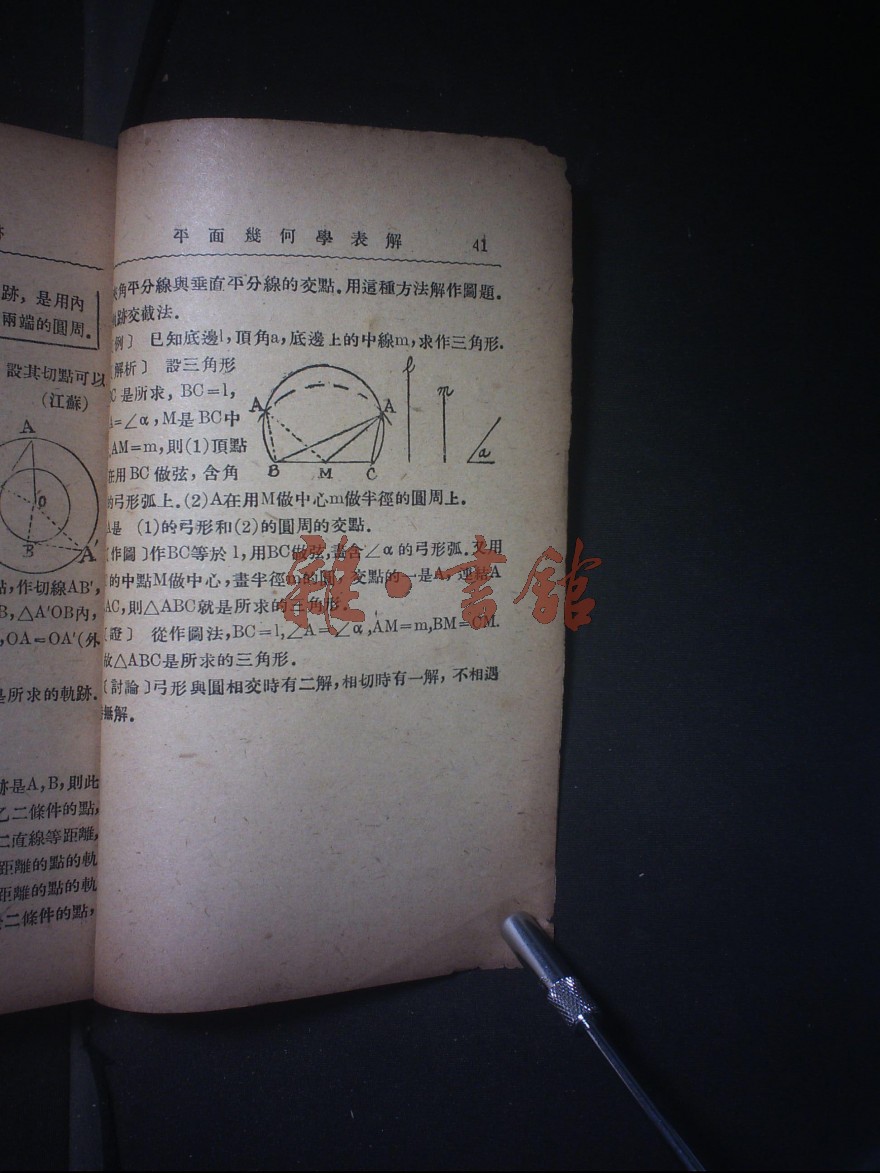 跡，是用內
兩端的圓周。
設其切點可以
(江蘇)
A
O
B
A′
點，作切線AB′，
B，△A′OB內，
，OA=OA′(外
是所求的軌跡。
跡是A，B，則此
乙二條件的點，
二直線等距離，
距離的點的軌
距離的點的軌
二條件的點，
平面幾何學表解 41
角平分線與垂直平分線的交點．用這種方法解作圖題．
軌跡交截法．
例〕 已知底邊l，頂角a，底邊上的中線m，求作三角形．
解析〕 設三角形
C是所求，BC=l，
A=∠α，M是BC中
AM=m，則(1)頂點
在用BC做弦，含角
的弓形弧上．(2)A在用M做中心m做半徑的圓周上．
A A
B M C
l
m
a
A是 (1)的弓形和(2)的圓周的交點．
〔作圖〕作BC等於l，用BC做弦，畫含∠α的弓形弧．又用
的中點M做中心，畫半徑m的圓，交點的一是A，連結A
AC，則△ABC就是所求的三角形．
〔證〕 從作圖法，BC=l，∠A=∠α，AM=m，BM=CM．
故△ABC是所求的三角形．
〔討論〕弓形與圓相交時有二解，相切時有一解，不相遇
無解．
雜·書館